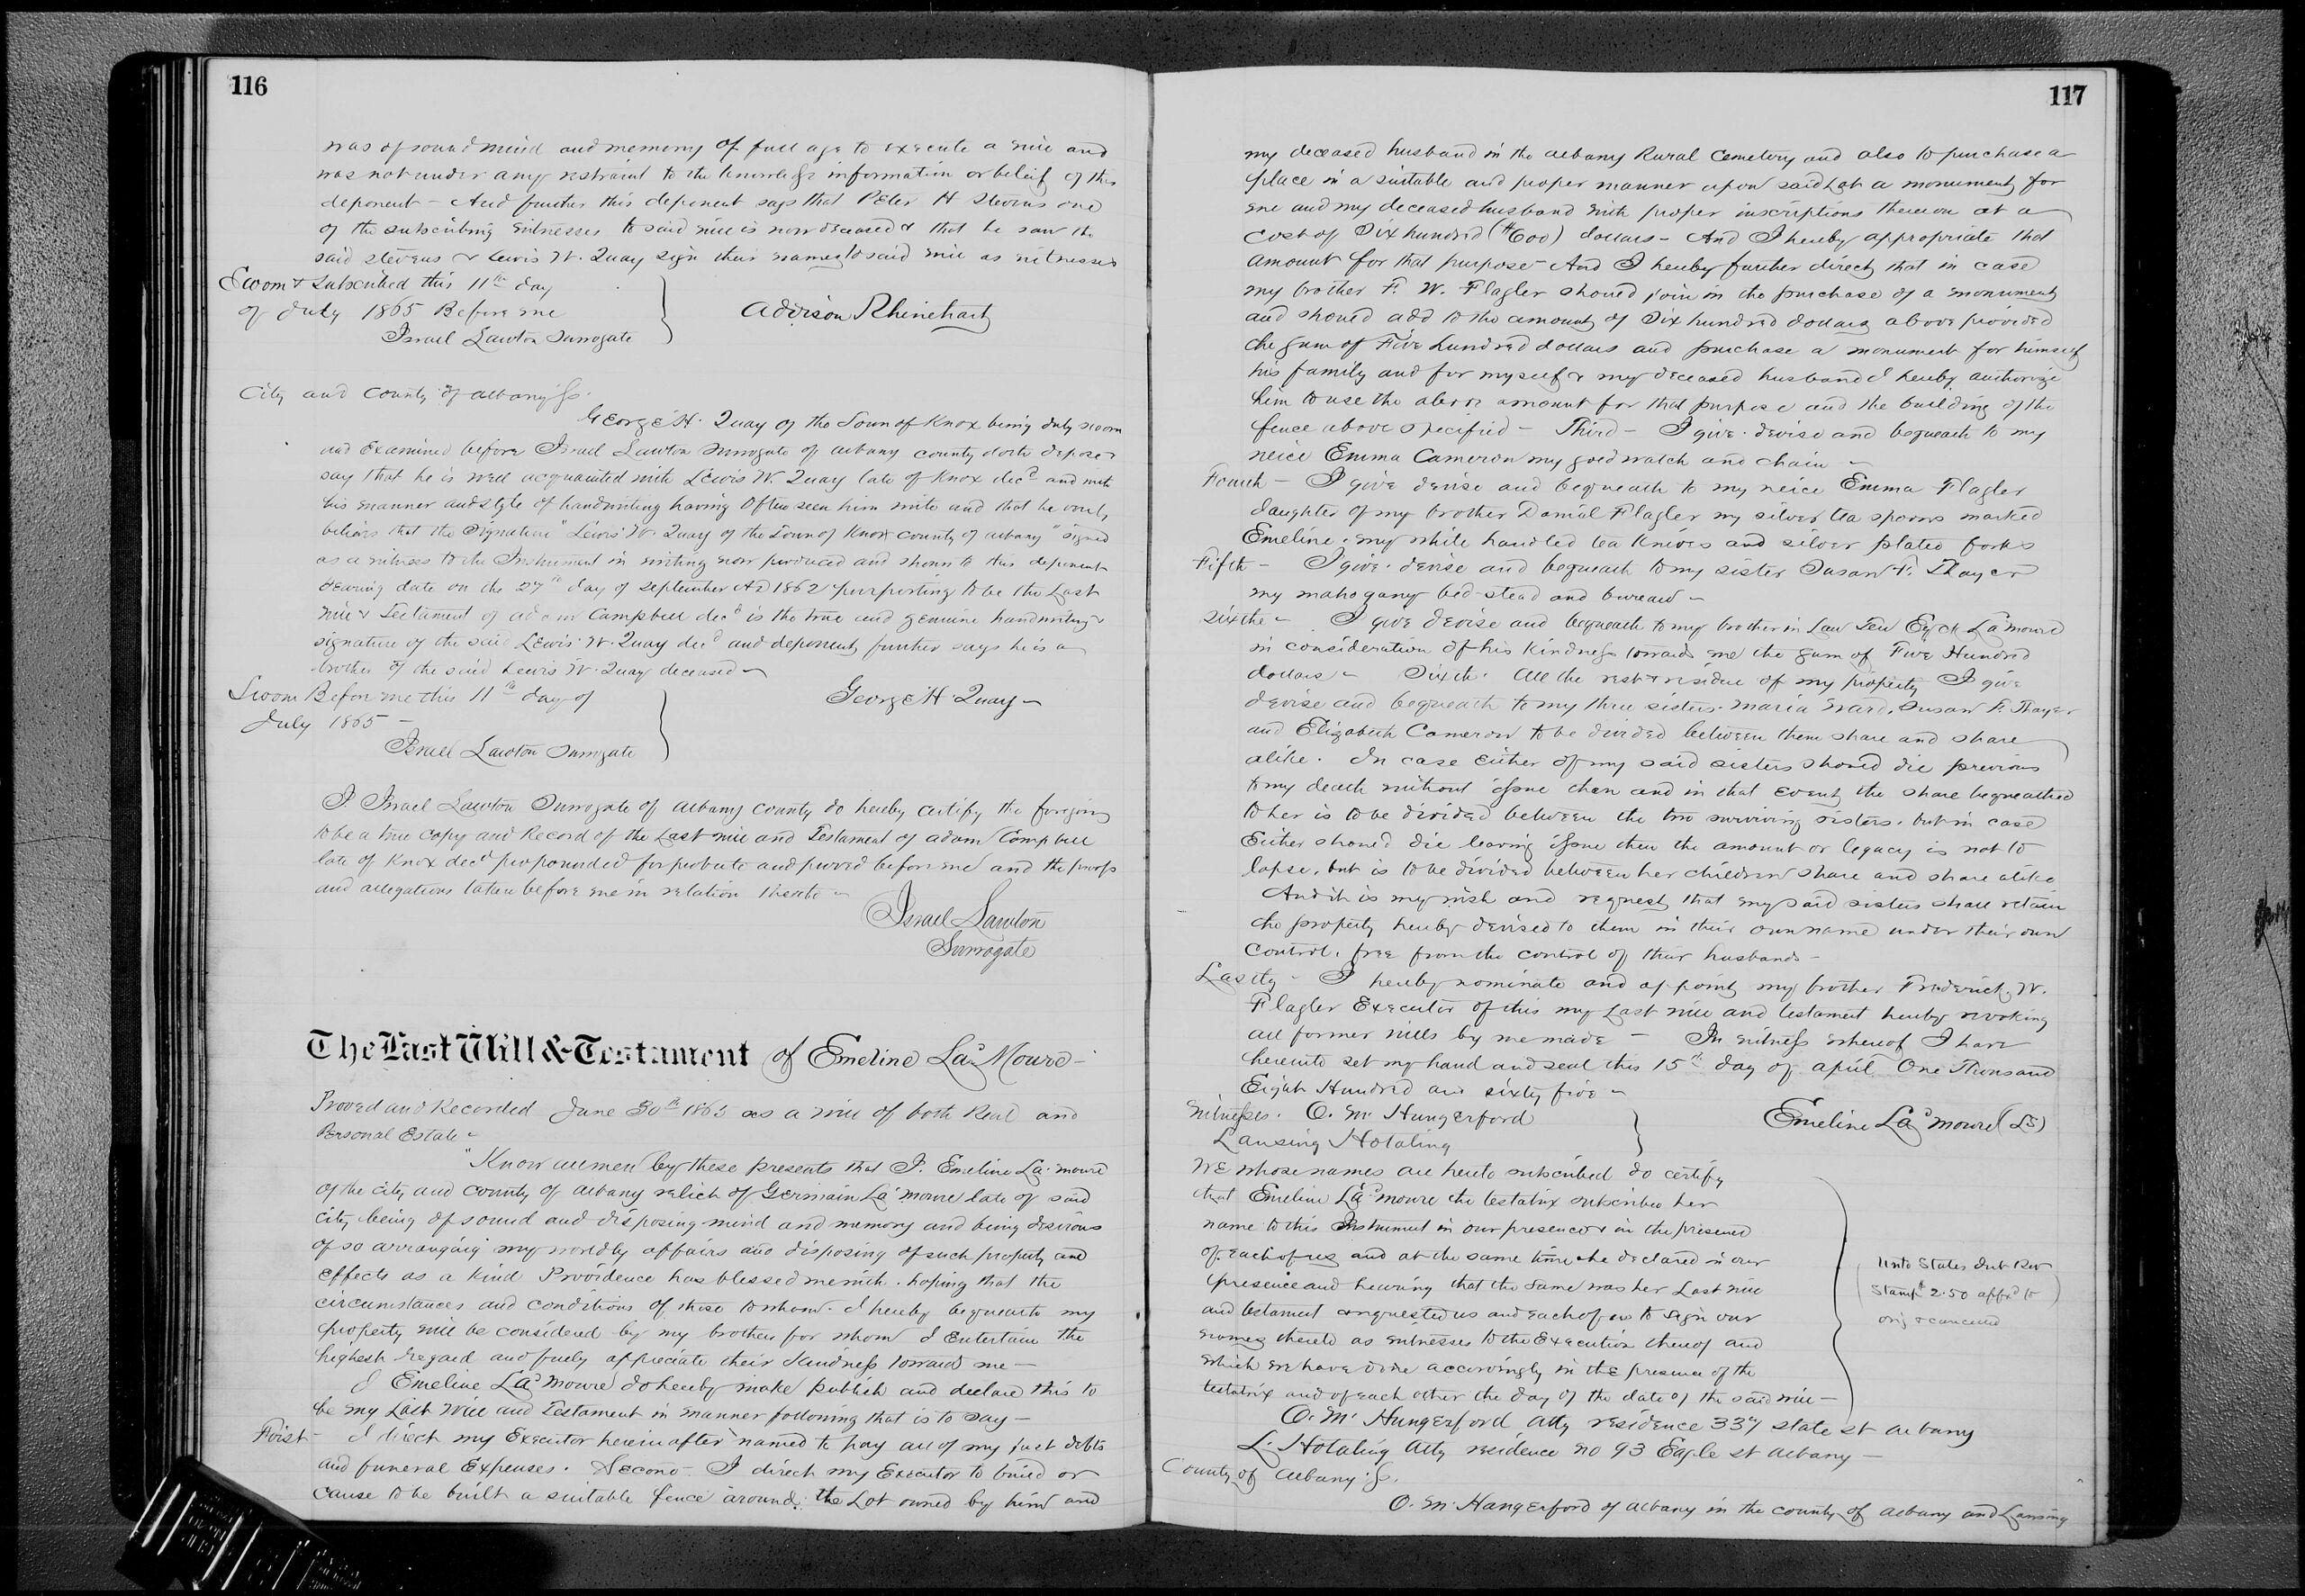 116
was of sound mind and memory of full age to execute a will and
was not under any restraint to the knowledge information or belief of this
deponent – And further this deponent says that Peter H Stevens one
of the subscribing witnesses to said will is now deceased & that he saw the
said Stevens & Lewis W. Quay sign their names to said will as witnesses
Sworn & Subscribed this 11th day
of July 1865 Before me
Israel Lawton Surrogate
Addison Rhinehart
City and County of Albany ss.
George H. Quay of the Town of Knox being duly sworn
and Examined before Israel Lawton Surrogate of Albany county doth depose &
say that he is well acquainted with Lewis W. Quay late of Knox decd and with
his manner and style of handwriting having often seen him write and that he verily
believes that the signature "Lewis W. Quay of the Town of Knox county of Albany" signed
as a witness to the Instrument in writing now produced and shown to this deponent
bearing date on the 27th day of September AD 1862 purporting to be the Last
Will & Testament of Adam Campbell decd is the true and genuine handwriting &
signature of the said Lewis W. Quay decd and deponent further says he is a
brother of the said Lewis W. Quay deceased –
Sworn Before me this 11th day of
July 1865 –
Israel Lawton Surrogate
George H Quay –
I. Israel Lawton Surrogate of Albany County do hereby certify the foregoing
to be a true copy and Record of the Last will and Testament of Adam Campbell
late of Knox decd propounded for probate and proved before me and the proofs
and allegations taken before me in relation thereto –
Israel Lawton
Surrogate
The Last Will & Testament of Emeline La Moure –
Proved and Recorded June 30th 1865 as a will of both Real and
Personal Estate –
"Know all men by these presents that I. Emeline La moure
of the city and county of Albany relict of Germain La moure late of said
city being of sound and disposing mind and memory and being desirous
of so arranging my worldly affairs and disposing of such property and
effects as a kind Providence has blessed me with. hoping that the
circumstances and conditions of those to whom I hereby bequeath my
property will be considered by my brothers for whom I Entertain the
highest regard and fully appreciate their kindness towards me –
I Emeline La moure do hereby make publish and declare this to
be my Last Will and Testament in manner following that is to say –
First – I direct my Executor hereinafter named to pay all of my just debts
and funeral Expenses. Second – I direct my Executor to build or
cause to be built a suitable fence around the Lot owned by him and
117
my deceased husband in the Albany Rural Cemetery and also to purchase a
place in a suitable and proper manner upon said Lot a monument for
me and my deceased husband with proper inscriptions thereon at a
cost of Six hundred ($600) dollars – And I hereby appropriate that
amount for that purpose – And I hereby further direct that in case
my brother F. W. Flagler should join in the purchase of a monument
and should add to the amount of Six hundred dollars above provided
the sum of Five hundred dollars and purchase a monument for himself
his family and for myself & my deceased husband I hereby authorize
him to use the above amount for that purpose and the building of the
fence above specified – Third – I give. devise and bequeath to my
neice Emma Cameron my gold watch and chain –
Fourth – I give devise and bequeath to my neice Emma Flagler
daughter of my brother Danial Flagler my silver tea spoons marked
Emeline. my white handled tea Knives and silver plated forks
Fifth – I give. devise and bequeath to my sister Susan F. Thayer
my mahogany bed-stead and bureau –
Sixthe – I give devise and bequeath to my brother in Law Ten Eyck La moure
in consideration of his Kindness towards me the sum of Five Hundred
dollars – Sixth. All the rest & residue of my property I give
devise and bequeath to my three sisters. Maria Ward, Susan F. Thayer
and Elizabeth Cameron to be divided between them share and share
alike. In case Either of my said sisters should die previous
to my death without issue then and in that event the share bequeathed
to her is to be divided between the two surviving sisters. but in case
Either should die leaving issue then the amount or legacy is not to
lapse. but is to be divided between her children share and share alike
And it is my wish and request that my said sisters shall retain
the property hereby devised to them in their own name under their own
control. free from the control of their husbands –
Lastly – I hereby nominate and appoint my brother Frederick W.
Flagler Executor of this my Last will and testament hereby revoking
all former wills by me made – In witness whereof I have
hereunto set my hand and seal this 15th day of April One Thousand
Eight Hundred and sixty five –
Witnesses. O. M. Hungerford
Lansing Hotaling
Emeline La moure (LS)
We whose names are hereto subscribed do certify
that Emeline La moure the testatrix subscribed her
name to this Instrument in our presence & in the presence
of each of us and at the same time she declared in our
presence and hearing that the same was her Last will
and testament & requested us and each of us to sign our
names thereto as witnesses to the Execution thereof and
which we have done accordingly in the presence of the
testatrix and of each other the day of the date of the said will –
Untd States Int Rev
Stamp 2.50 affxd to
orig & cancelled
O. M. Hungerford Atty residence 337 State st Albany
L. Hotaling Atty residence no 93 Eagle st Albany –
County of Albany. ss.
O. M. Hungerford of Albany in the county of Albany and Lansing